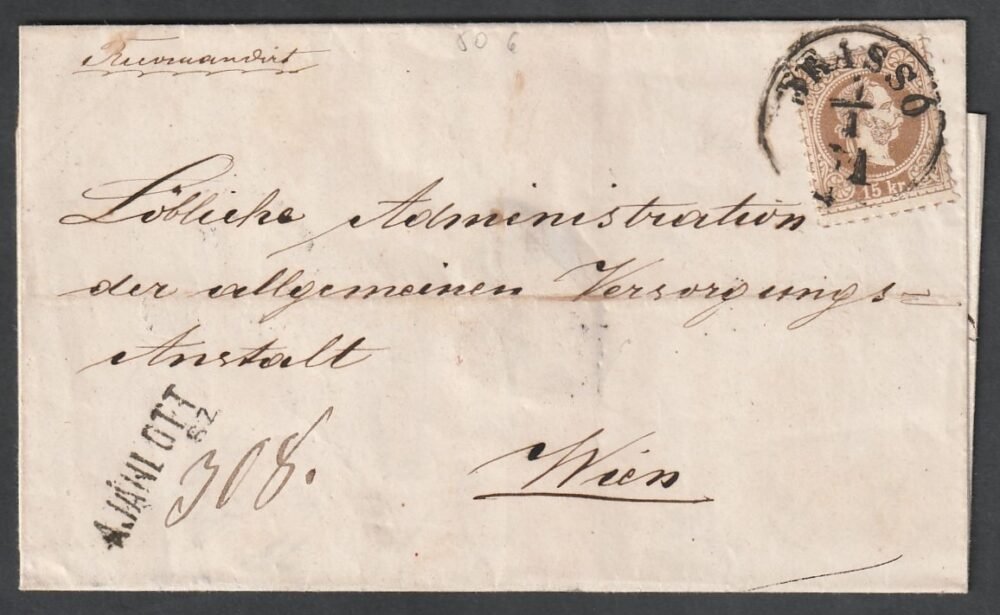 Recomandirt
50 6
BRASSÓ
1
1
71
15 kr
Löbliche Administration
der allgemeinen Versorgungs=
Anstalt
AJÁNLOTT
SZ
308.
Wien